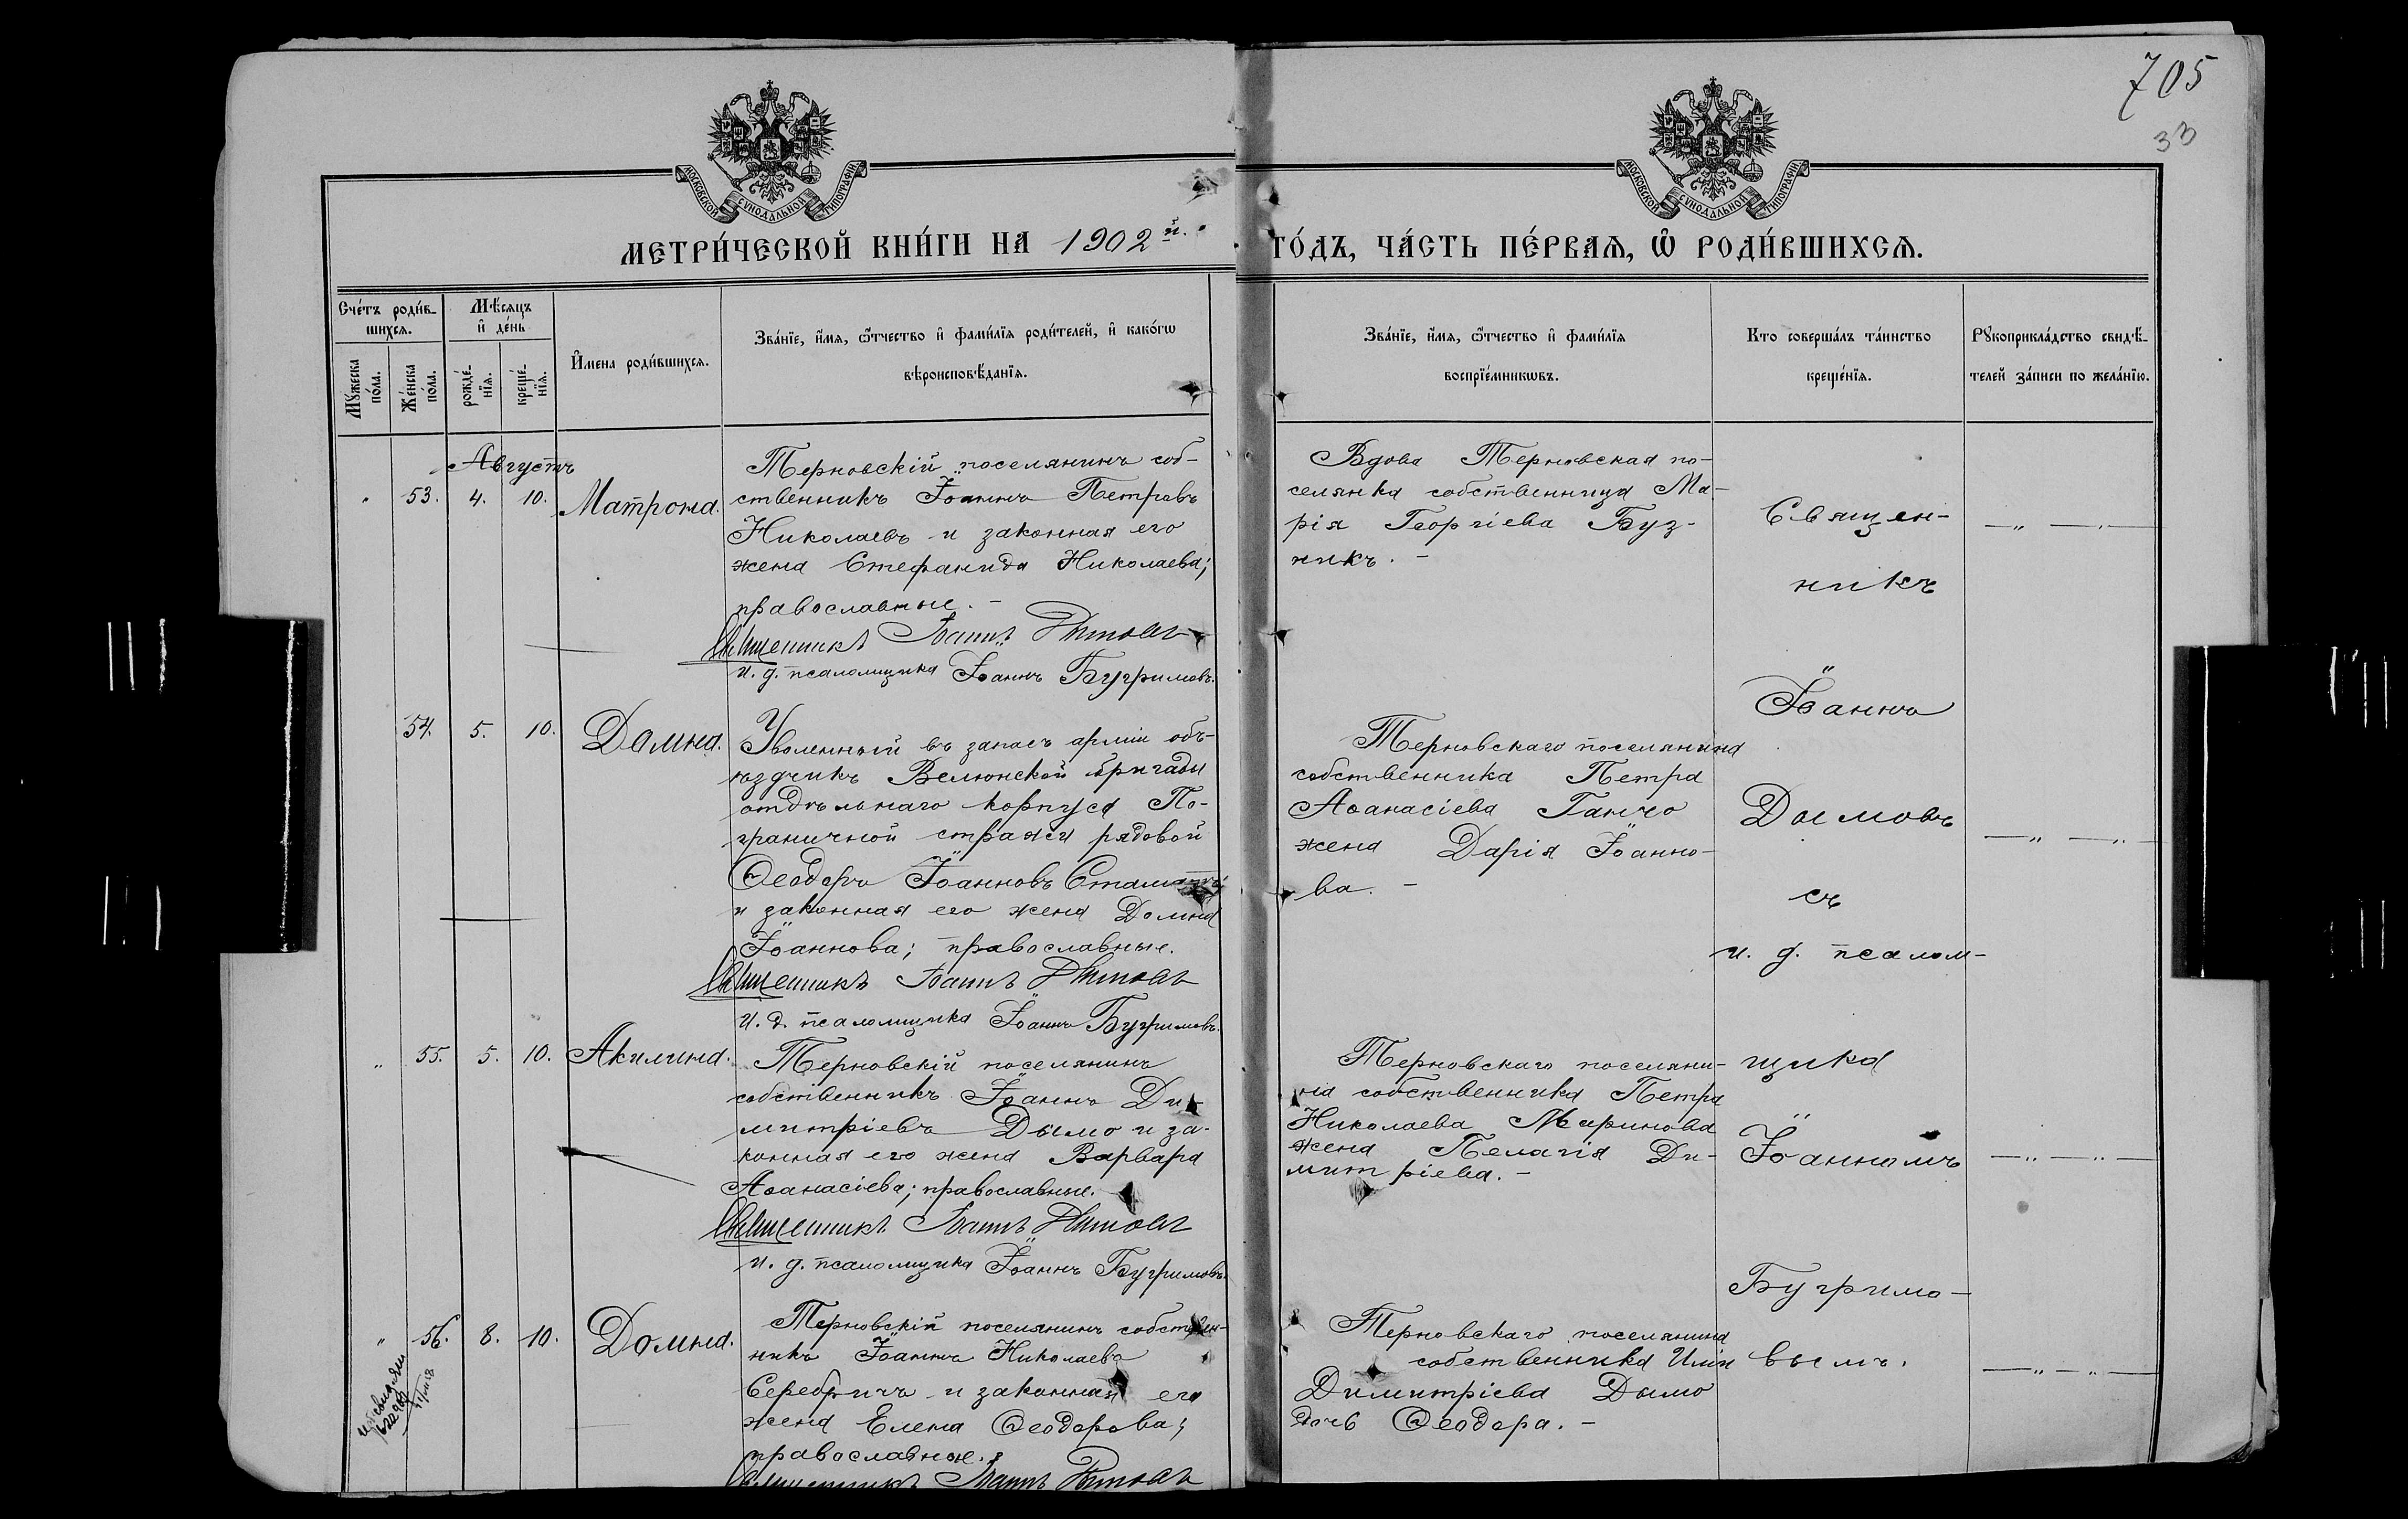 705
33
МОСКОВСКОЙ СѴНОДАЛЬНОЙ ТИПОГРАФІИ
МОСКОВСКОЙ СѴНОДАЛЬНОЙ ТИПОГРАФІИ
МЕТРИ́ЧЕСКОЙ КНИ́ГИ НА 1902й.
ГО́ДЪ, ЧА́СТЬ ПЕ́РВАѦ, Ѽ РОДИ́ВШИХСѦ.
Сче́тъ роди́в-
шихся.
Мѣ́сяцъ
и҆ де́нь
Мꙋ́жеска
по́ла.
Же́нска
по́ла.
рожде́-
нїя.
креще́-
нїя.
И҆мена роди́вшихся.
Зва́нїе, и҆́мя, ѻ҆́тчество и҆ фами́лїя роди́телей, и҆ како́гѡ
вѣроисповѣ́данїя.
Зва́нїе, и҆́мя, ѻ҆́тчество и҆ фами́лїя
воспрїе́мникѡвъ.
Кто соверша́лъ та́инство
креще́нїя.
Рꙋкоприкла́дство свидѣ́-
телей за́писи по жела́нїю.
Августъ
" 53. 4. 10. Матрона.
Терновскій поселянинъ соб-
ственникъ Іоаннъ Петровъ
Николаевъ и законная его
жена Стефанида Николаева;
православные. -
Священникъ Іоаннъ Дымовъ
и. д. псаломщика Іоаннъ Бугримовъ.
Вдова Терновская по-
селянка собственница Ма-
рія Георгіева Буз-
никъ. -
Священ-
никъ
Іоаннъ
Дымовъ
съ
и. д. псалом-
щика
Іоанномъ
Бугримо-
вымъ.
54. 5. 10. Домна.
Уволенный въ запасъ арміи объ-
ѣздчикъ Велюнской бригады
отдѣльнаго корпуса По-
граничной стражи рядовой
Ѳеодоръ Іоанновъ
и законная его жена Домна
Іоаннова; православные.
Священникъ Іоаннъ Дымовъ
И. д. псаломщика Іоаннъ Бугримовъ.
Терновскаго поселянина
собственника Петра
Аѳанасіева Ганчо
жена Дарія Іоанно-
ва. -
" 55. 5. 10. Акилина.
Терновскій поселянинъ
собственникъ Іоаннъ Ди-
митріевъ Дымо и за-
конная его жена Варвара
Аѳанасіева; православные.
Священникъ Іоаннъ Дымовъ
и. д. псаломщика Іоаннъ Бугримовъ.
Терновскаго поселяни-
на собственника Петра
Николаева Маринова
жена Пелагія Ди-
митріева. -
" 56. 8. 10. Домна.
Терновскій поселянинъ собствен-
никъ Іоаннъ Николаевъ
Серебричъ и законная его
жена Елена Ѳеодорова;
православные.
Священникъ Іоаннъ Дымовъ
Терновскаго поселянина
собственника Иліи
Димитріева Дымо
дочь Ѳеодора. -